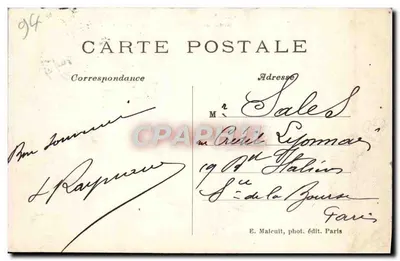 94
CARTE POSTALE
Correspondance
Adresse
Mr Sales
au Crédit Lyonnais
19 Bd Italiens
Sce de la Bourse
Paris
Bon souvenir
CPARAMA
E. Malcuit, phot. édit. Paris